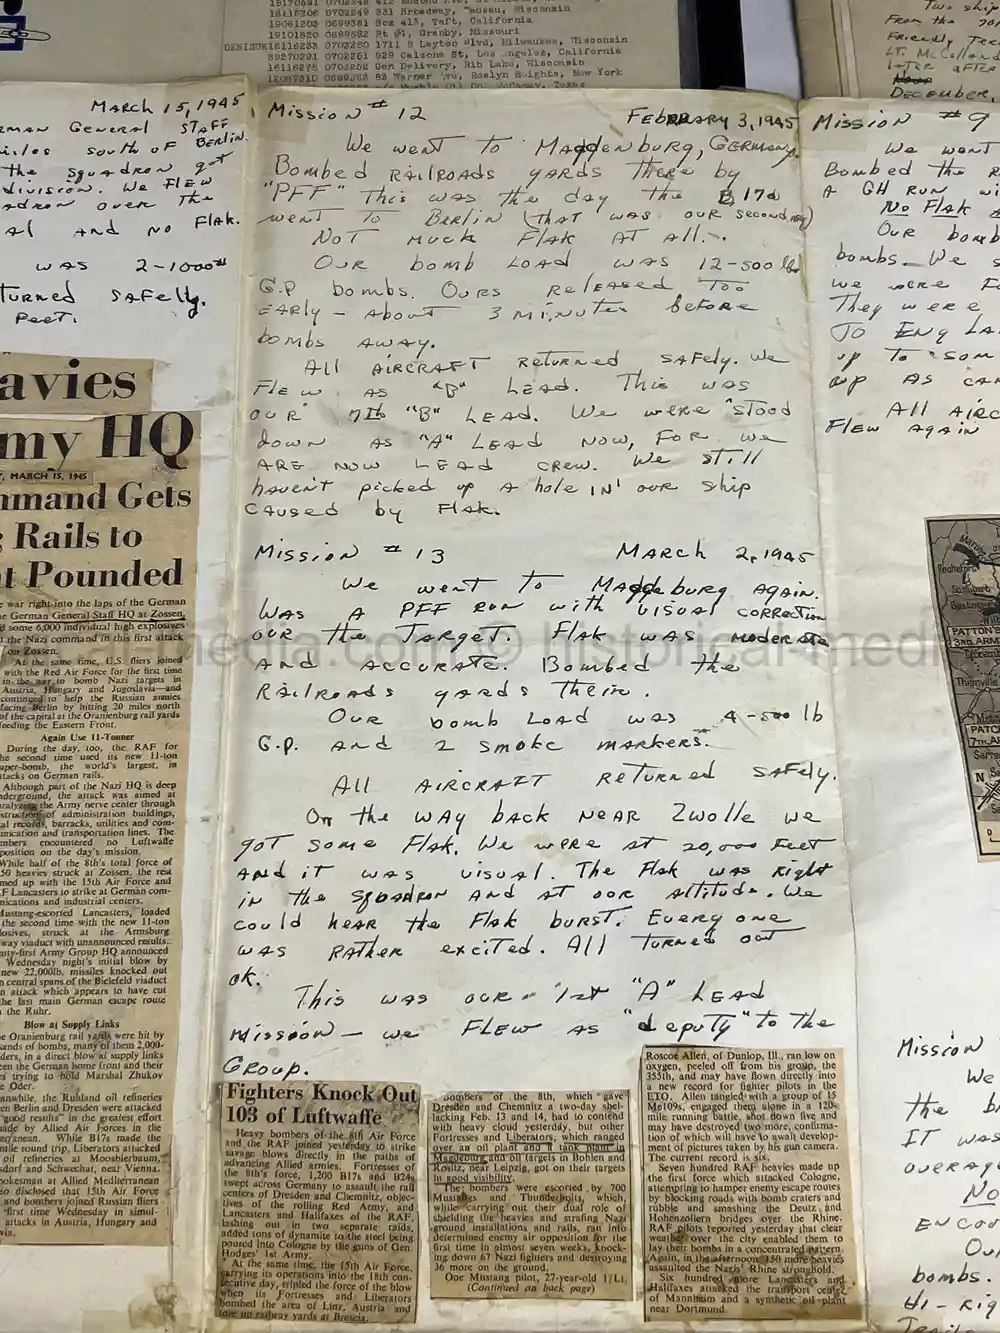 331 Broadway, Wausau, Wisconsin
19061203 0699381 Box 413, Taft, California
19101820 0699382 Rt #1, Granby, Missouri
DENISUK 16116233 0702250 1711 S Layton Blvd, Milwaukee, Wisconsin
39270291 0702251 929 Calsona St, Los Angeles, California
16116275 0702252 Gen Delivery, Rib Lake, Wisconsin
12087310 0699383 83 Warner Ave, Roslyn Heights, New York
Two ship
From the 20
Friendly, Ter
Lt. McClelland
later after
December,
March 15, 1945
rman General Staff
miles south of Berlin.
the squadron got
division. We flew
adron over the
al and no flak.
was 2-1000#
turned safely.
feet.
avies
my HQ
, MARCH 15, 1945
mmand Gets
g Rails to
t Pounded
e war right into the laps of the German
e German General Staff HQ at Zossen,
d some 6,000 individual high explosives
t the Nazi command in this first attack
on Zossen.
At the same time, U.S. fliers joined
with the Red Air Force for the first time
in the war to bomb Nazi targets in
Austria, Hungary and Jugoslavia—and
continued to help the Russian armies
facing Berlin by hitting 20 miles north
of the capital at the Oranienburg rail yards
feeding the Eastern Front.
Again Use 11-Tonner
During the day, too, the RAF for
the second time used its new 11-ton
uper-bomb, the world's largest, in
ttacks on German rails.
Although part of the Nazi HQ is deep
nderground, the attack was aimed at
aralyzing the Army nerve center through
struction of administration buildings,
al records, barracks, utilities and com-
unication and transportation lines. The
mbers encountered no Luftwaffe
position on the day's mission.
While half of the 8th's total force of
50 heavies struck at Zossen, the rest
med up with the 15th Air Force and
F Lancasters to strike at German com-
nications and industrial centers.
Mustang-escorted Lancasters, loaded
the second time with the new 11-ton
losives, struck at the Arnsburg
way viaduct with unannounced results.
nty-first Army Group HQ announced
Wednesday night's initial blow by
new 22,000lb. missiles knocked out
central spans of the Bielefeld viaduct
n attack which appears to have cut
the last main German escape route
the Ruhr.
Blow at Supply Links
e Oranienburg rail yards were hit by
sands of bombs, many of them 2,000-
ders, in a direct blow at supply links
een the German home front and their
es trying to hold Marshal Zhukov
e Oder.
anwhile, the Ruhland oil refineries
en Berlin and Dresden were attacked
"good results" in the greatest effort
ade by Allied Air Forces in the
erranean. While B17s made the
mile round trip, Liberators attacked
oil refineries at Moosbierbaum,
sdorf and Schwechat, near Vienna.
okesman at Allied Mediterranean
so disclosed that 15th Air Force
and bombers joined Russian fliers
first time Wednesday in simul-
attacks in Austria, Hungary and
via.
Mission #12 February 3, 1945
We went to Magdenburg, Germany.
Bombed railroads yards there by
"PFF" This was the day the B17s
went to Berlin (that was our secondary)
Not much flak at all.
Our bomb load was 12-500 lb
G.P bombs. Ours released too
early - about 3 minutes before
bombs away.
All aircraft returned safely. We
flew as "B" lead. This was
our 7th "B" lead. We were "stood
down as "A" lead now, for we
are now lead crew. We still
haven't picked up a hole in our ship
caused by flak.
Mission #13 March 2, 1945
We went to Magdeburg again.
Was a PFF run with visual correction
our the target. Flak was moderate
and accurate. Bombed the
railroads yards their.
Our bomb load was 4-500 lb
G.P. and 2 smoke markers.
All aircraft returned safely.
On the way back near Zwolle we
got some flak. We were at 20,000 feet
and it was visual. The flak was right
in the squadron and at our altitude. We
could hear the flak burst. Every one
was rather excited. All turned out
ok.
This was our 1st "A" lead
mission - we flew as "deputy" to the
group.
Fighters Knock Out
103 of Luftwaffe
Heavy bombers of the 8th Air Force
and the RAF joined yesterday to strike
savage blows directly in the paths of
advancing Allied armies. Fortresses of
the 8th's force, 1,200 B17s and B24s
swept across Germany to assault the rail
centers of Dresden and Chemnitz, objec-
tives of the rolling Red Army, and
Lancasters and Halifaxes of the RAF,
lashing out in two separate raids,
added tons of dynamite to the steel being
poured into Cologne by the guns of Gen.
Hodges' 1st Army.
At the same time, the 15th Air Force,
carrying its operations into the 18th con-
secutive day, tripled the force of the blow
when its Fortresses and Liberators
bombed the area of Linz, Austria and
tore up railway yards at Brescia.
Bombers of the 8th, which gave
Dresden and Chemnitz a two-day shel-
lacking Feb. 13 and 14, had to contend
with heavy cloud yesterday, but other
Fortresses and Liberators, which ranged
over an oil plant and a tank plant in
Magdeburg and oil targets in Bohlen and
Rositz, near Leipzig, got on their targets
in good visibility.
The bombers were escorted by 700
Mustangs and Thunderbolts, which,
while carrying out their dual role of
shielding the heavies and strafing Nazi
ground installations and rails, ran into
determined enemy air opposition for the
first time in almost seven weeks, knock-
ing down 67 Nazi fighters and destroying
36 more on the ground.
One Mustang pilot, 27-year-old 1/Lt.
(Continued on back page)
Roscoe Allen, of Dunlop, Ill., ran low on
oxygen, peeled off from his group, the
355th, and may have flown directly into
a new record for fighter pilots in the
ETO. Allen tangled with a group of 15
Me109s, engaged them alone in a 120-
mile running battle, shot down five and
may have destroyed two more, confirma-
tion of which will have to await develop-
ment of pictures taken by his gun camera.
The current record is six.
Seven hundred RAF heavies made up
the first force which attacked Cologne,
attempting to hamper enemy escape routes
by blocking roads with bomb craters and
rubble and smashing the Deutz and
Hohenzollern bridges over the Rhine.
RAF pilots reported yesterday that clear
weather over the city enabled them to
lay their bombs in a concentrated pattern.
Again, in the afternoon, 150 more heavies
assaulted the Nazis' Rhine stronghold.
Six hundred more Lancasters and
Halifaxes attacked the transport center
of Mannheim and a synthetic oil plant
near Dortmund.
Mission #9
We went
Bombed the R
A GH run wi
No Flak
Our bomb
bombs - We s
we were F
They were
To England
up to som
up as can
All airc
flew again
PATTON'S
3RD ARM
Thionville
PATC
7TH AR
N
S
Mission
We
the b
It was
overage
No
encou
Our
bombs.
Hi-rig
historical-media